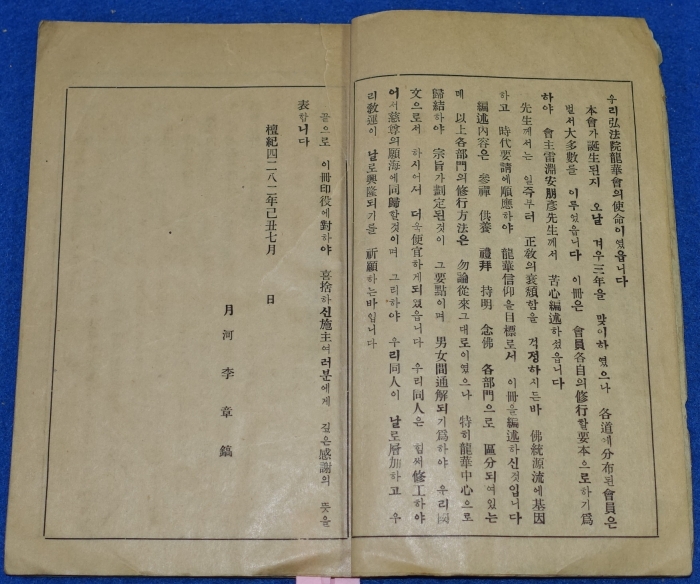 우리弘法院龍華會의使命이였읍니다
本會가誕生된지 오날 겨우三年을 맞이하였으나 各道에分布된會員은
벌서大多數를 이루었읍니다 이冊은 會員各自의修行할要本으로하기爲
하야 會主雷淵安朋彦先生께서 苦心編述하섰읍니다
先生께서는 일즉부터 正敎의衰頹함을 걱정하시든바 佛統源流에基因
하고 時代要請에順應하야 龍華信仰을目標로서 이冊을編述하신것입니다
編述內容은 參禪 供養 禮拜 持明 念佛 各部門으로 區分되여있는
데 以上各部門의修行方法은 勿論從來그대로이였으나 特히龍華中心으로
歸結하야 宗旨가劃定된것이 그要點이며 男女間通解되기爲하야 우리國
文으로서 하시어서 더욱便宜하게되였읍니다 우리同人은 힘써修工하야
어서慈尊의願海에同歸할것이며 그리하야 우리同人이 날로層加하고 우
리敎運이 날로興隆되기를 祈願하는바입니다
끝으로 이冊印役에對하야 喜捨하신施主여러분에게 깊은感謝의 뜻을
表합니다
檀紀四二八二年己丑七月 日
月河李章鎬